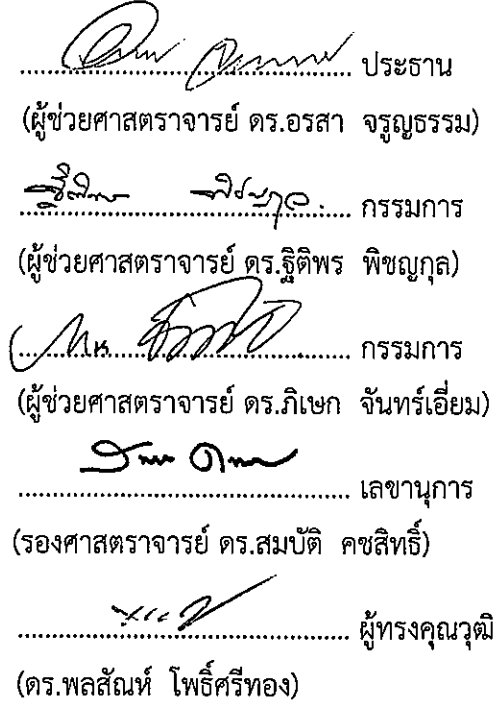 .................................................. ประธาน
(ผู้ช่วยศาสตราจารย์ ดร.อรสา จรูญธรรม)
.................................................. กรรมการ
(ผู้ช่วยศาสตราจารย์ ดร.ฐิติพร พิชญกุล)
.................................................. กรรมการ
(ผู้ช่วยศาสตราจารย์ ดร.ภิเษก จันทร์เอี่ยม)
.................................................. เลขานุการ
(รองศาสตราจารย์ ดร.สมบัติ คชสิทธิ์)
.................................................. ผู้ทรงคุณวุฒิ
(ดร.พลสัณห์ โพธิ์ศรีทอง)